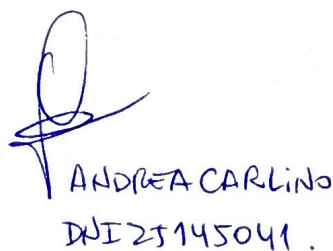 ANDREA CARLINO
DNI 25145041.